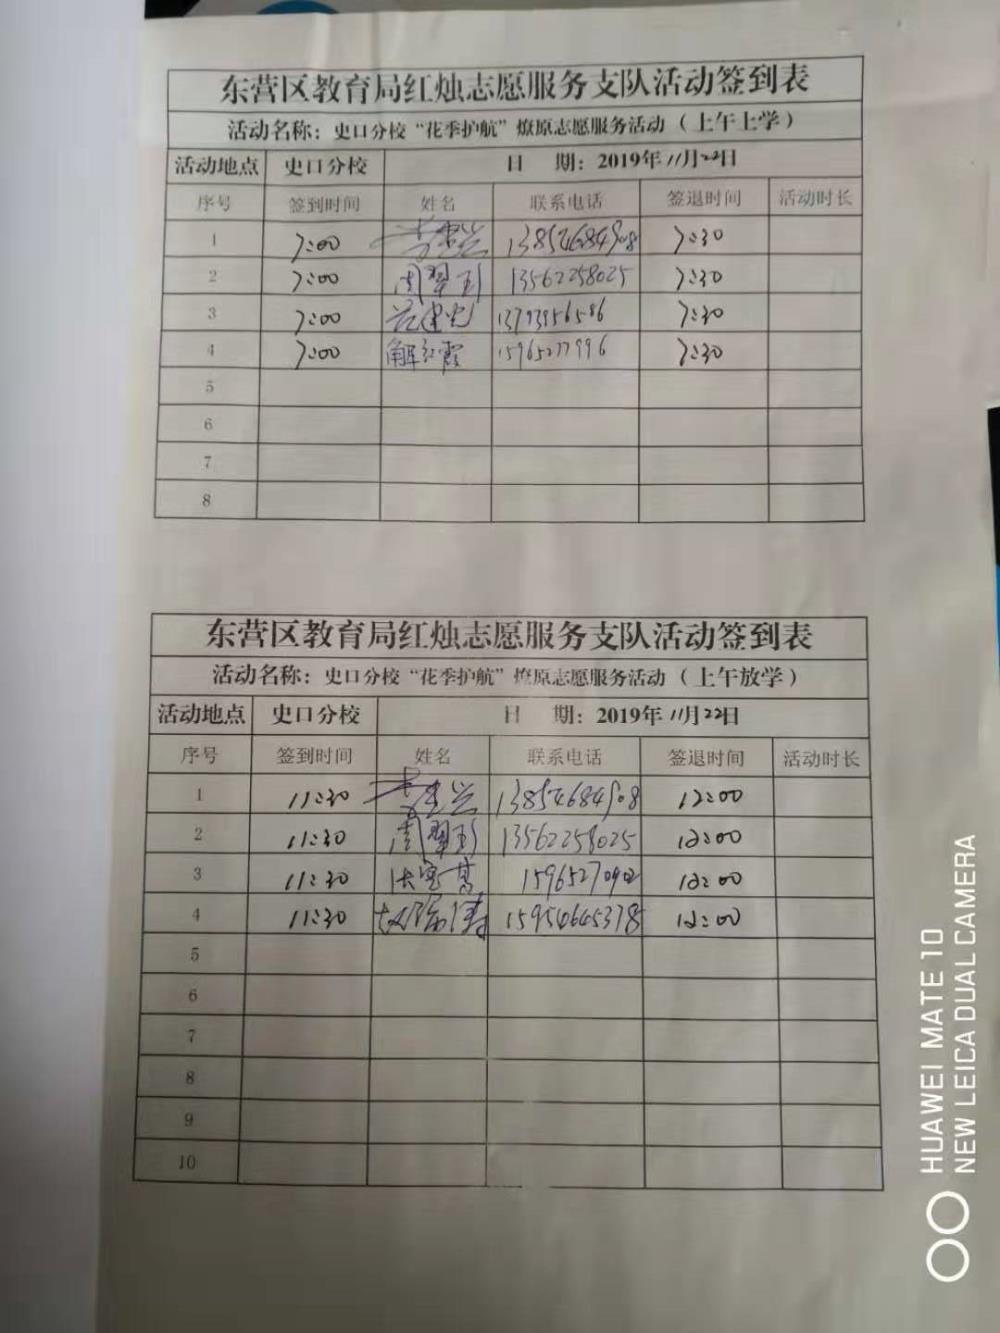 东营区教育局红烛志愿服务支队活动签到表
活动名称：史口分校“花季护航”燎原志愿服务活动（上午上学）
活动地点 史口分校 日 期：2019年11月22日
序号 签到时间 姓名 联系电话 签退时间 活动时长
1 7:00 13854684908 7:30
2 7:00 周翠珍 13562258025 7:30
3 7:00 范建光 13793956586 7:30
4 7:00 解红霞 15965277996 7:30
5
6
7
8
东营区教育局红烛志愿服务支队活动签到表
活动名称：史口分校“花季护航”燎原志愿服务活动（上午放学）
活动地点 史口分校 日 期：2019年11月22日
序号 签到时间 姓名 联系电话 签退时间 活动时长
1 11:30 13854684908 12:00
2 11:30 周翠珍 13562258025 12:00
3 11:30 15965270902 12:00
4 11:30 15954645378 12:00
5
6
7
8
9
10
HUAWEI MATE 10
NEW LEICA DUAL CAMERA